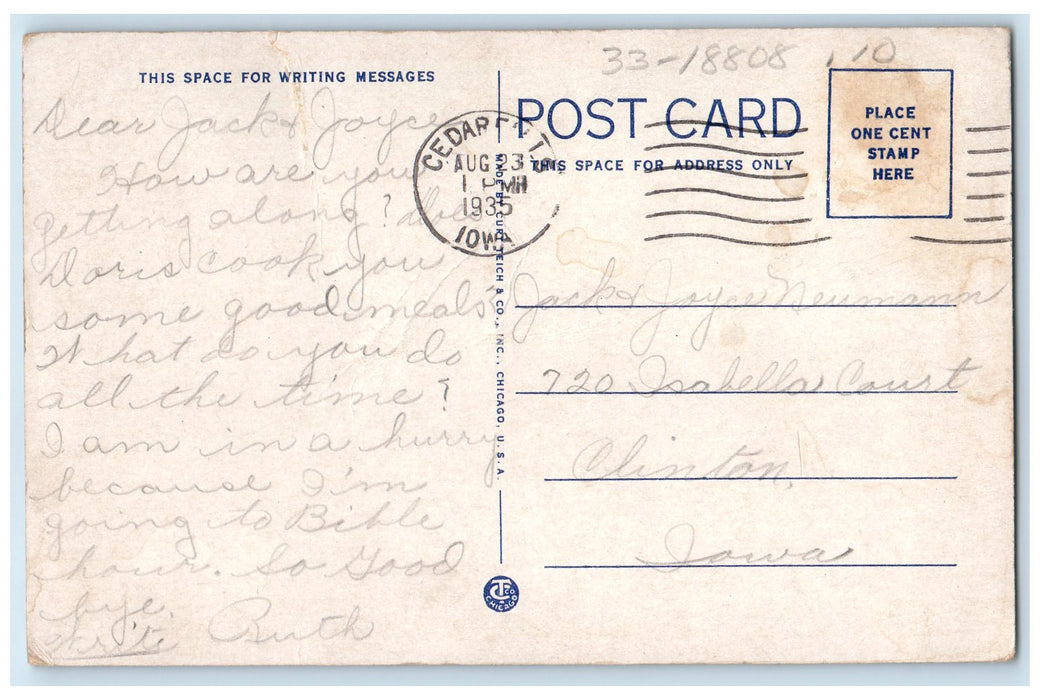 33-18808 .10
THIS SPACE FOR WRITING MESSAGES
Dear Jack & Joyce
How are you
getting along? does
Doris cook you
some good meals?
What do you do
all the time?
I am in a hurry
because I'm
going to Bible
hour. So Good
bye.
Write Ruth
CEDAR FALLS
AUG 23
1935
IOWA
MADE BY CURT TEICH & CO., INC., CHICAGO, U.S.A.
CT CO CHICAGO
POST CARD
THIS SPACE FOR ADDRESS ONLY
PLACE
ONE CENT
STAMP
HERE
Jack & Joyce Neumann
720 Isabella Court
Clinton,
Iowa